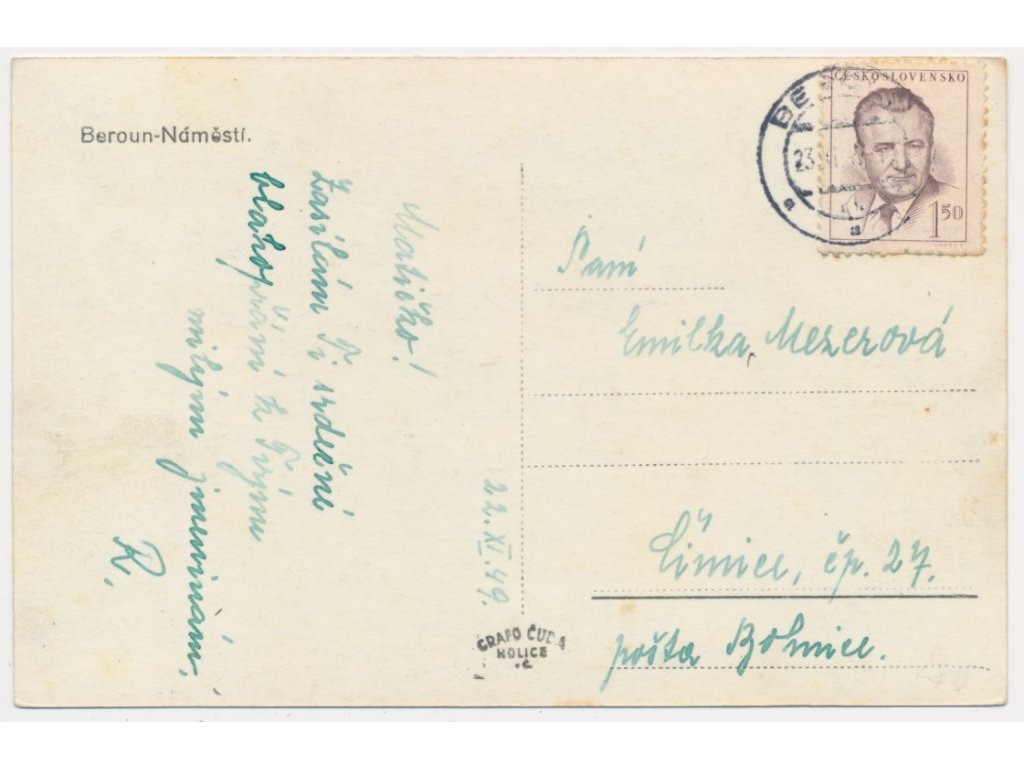 Beroun-Náměstí.
Matičko!
Zasílám Ti srdečné
blahopřání k Tvým
milým jmeninám.
R.
22.XI.49.
GRAFO ČUDA
HOLICE
ČESKOSLOVENSKO
1 50
23
Paní
Emilka Mezerová
Čimice, čp. 27.
pošta Bohnice.